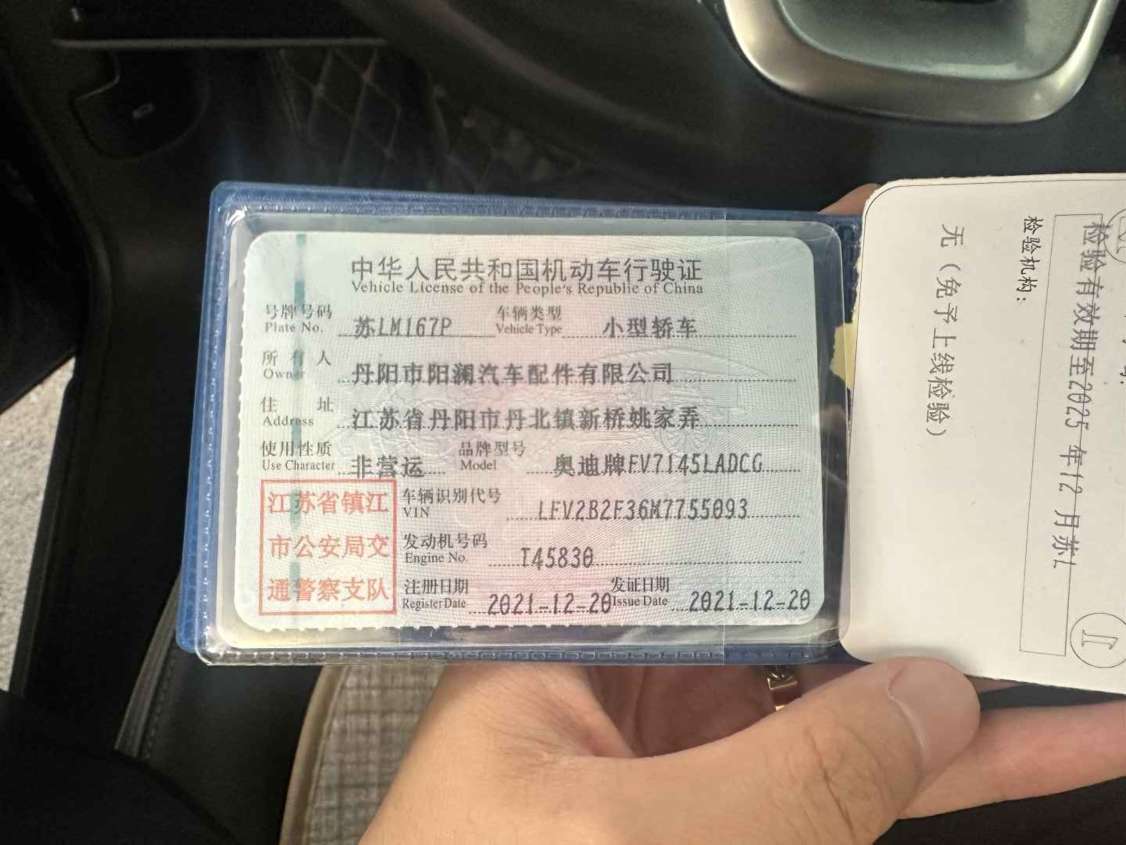 中华人民共和国机动车行驶证
Vehicle License of the People's Republic of China
号牌号码 苏LM167P 车辆类型 小型轿车
Plate No. Vehicle Type
所有人 丹阳市阳澜汽车配件有限公司
Owner
住址 江苏省丹阳市丹北镇新桥姚家弄
Address
使用性质 非营运 品牌型号 奥迪牌FV7145LADCG
Use Character Model
江苏省镇江
市公安局交
通警察支队
车辆识别代号 LFV2B2F36M7755093
VIN
发动机号码 T45830
Engine No.
注册日期 2021-12-20 发证日期 2021-12-20
Register Date Issue Date
检验有效期至2025年12月苏L
检验机构：
无（免予上线检验）